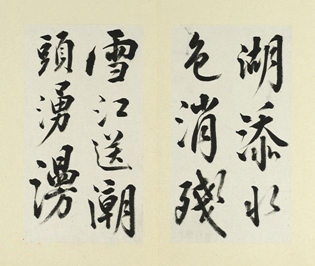 湖添水
色消殘
雪江送潮
頭湧漫